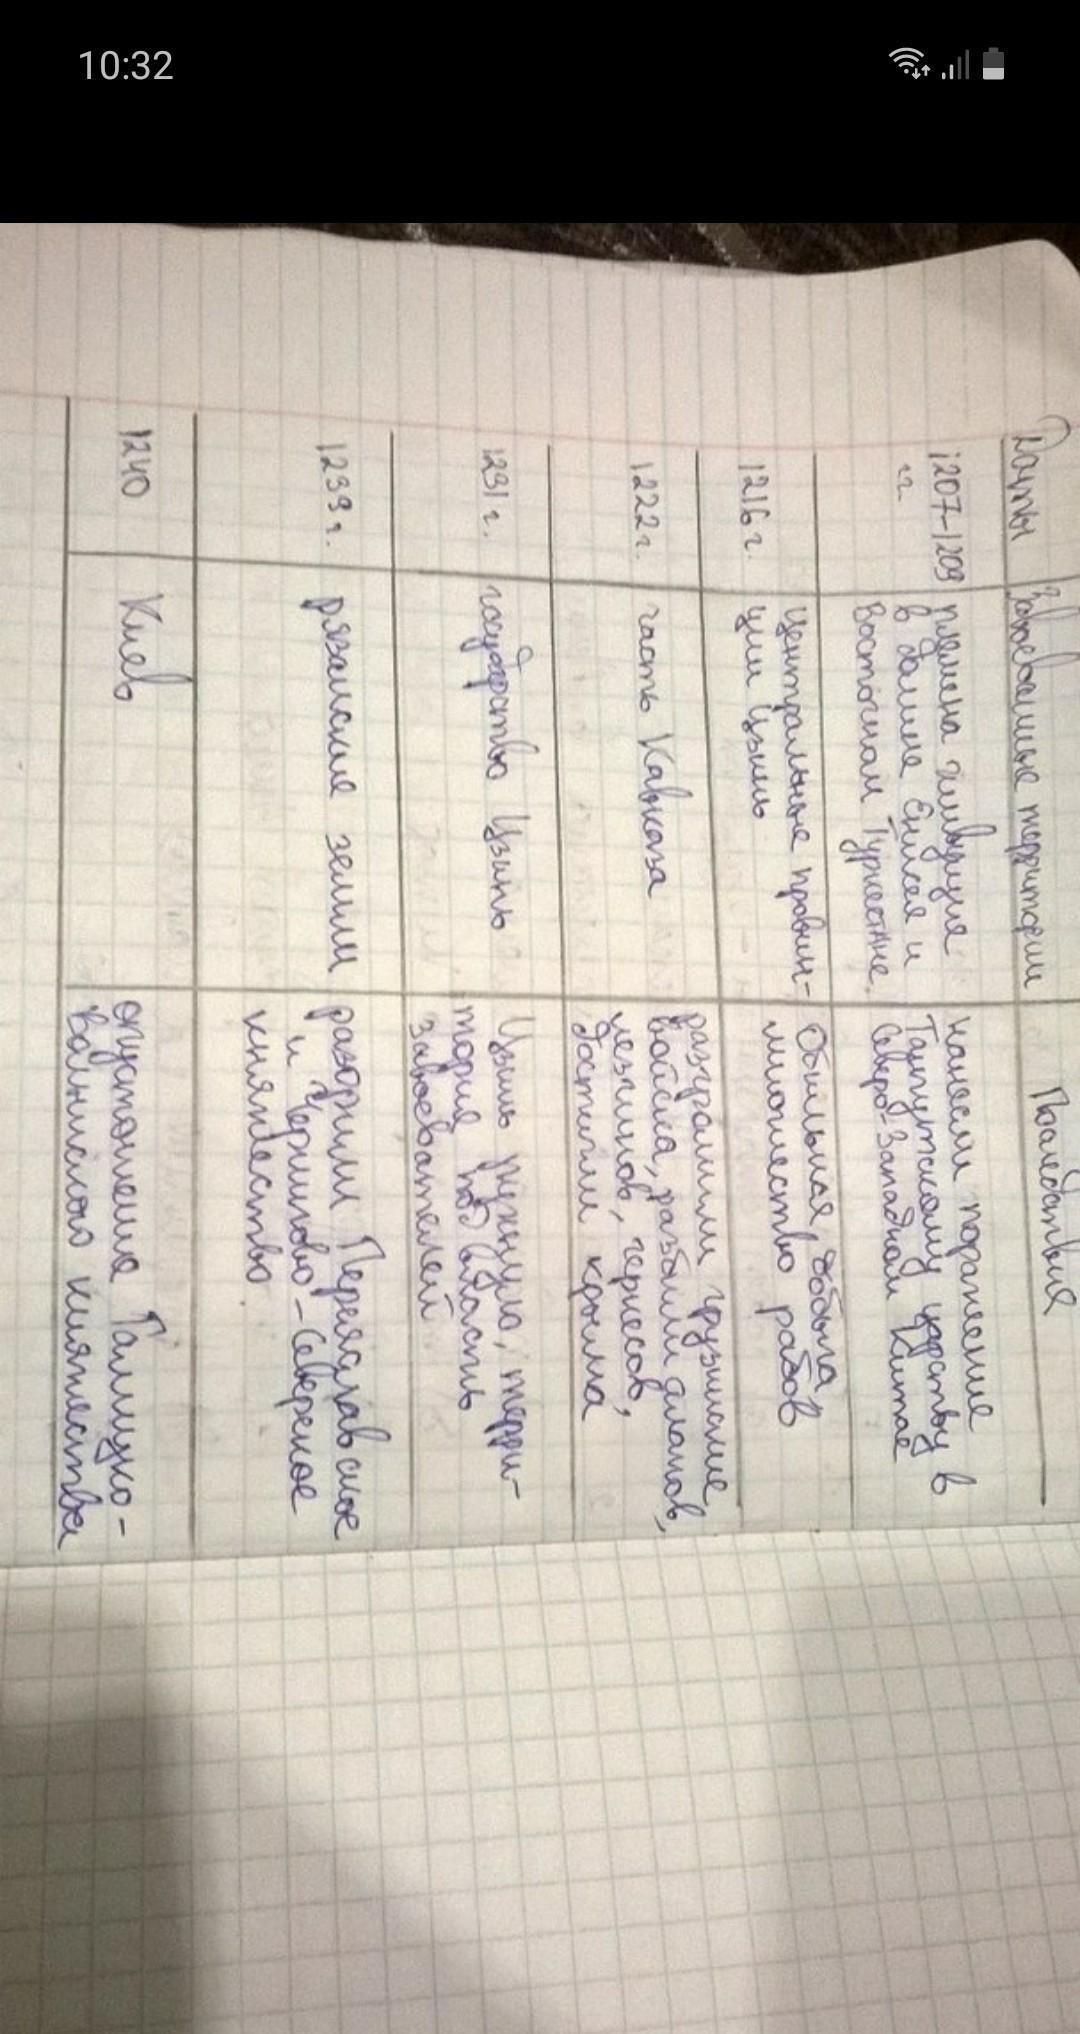 10:32
Даты Завоеванные территории Последствия
1207-1209 племена живущие нанесли поражение
гг. в долине Енисея и Тангутскому царству в
Восточном Туркестане. Северо-Западном Китае
1216 г. Центральные провин- Обильная добыча,
ции Цзинь множество рабов
1222 г. часть Кавказа разгромили грузинские
войска, разбили аланов,
лезгинов, черкесов,
достигли крыма
1231 г. государство Цзинь Цзинь рухнуло, терри-
тория под властью
завоевателей
1239 г. рязанские земли разорили Переяславское
и Чернигово-Северское
княжество
1240 Киев опустошение Галицко-
Волынского княжества